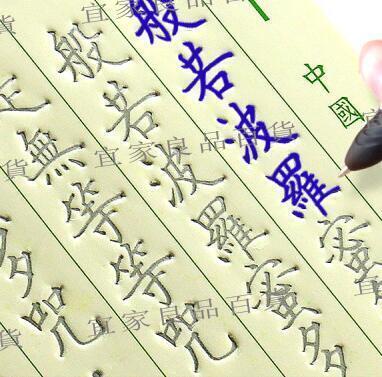 中國
般若波羅蜜
般若波羅蜜多
無等等咒
多咒
宜家良品百貨
宜家良品百貨
宜家良品百貨